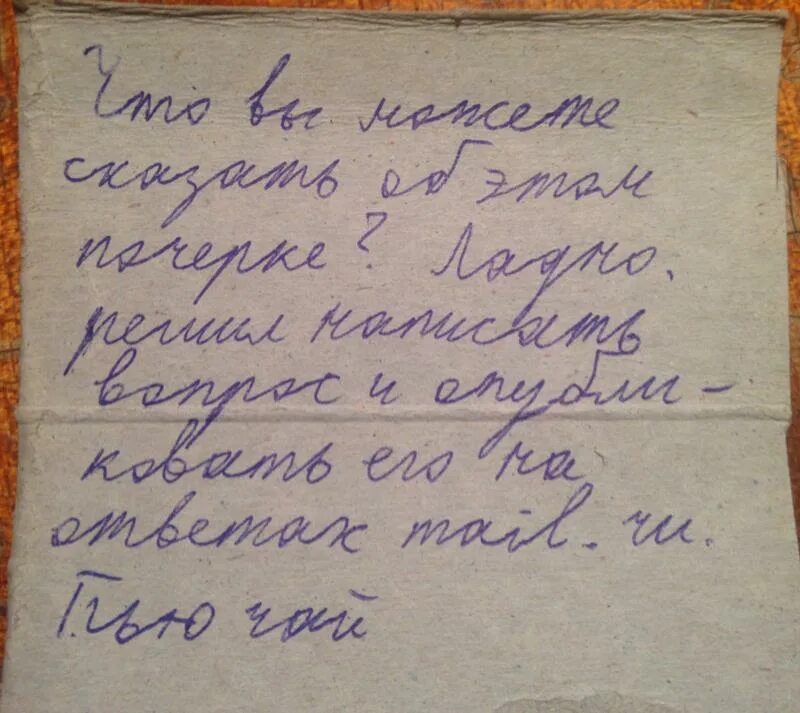 Что вы можете
сказать об этом
почерке? Ладно,
решил написать
вопрос и опубли-
ковать его на
ответах mail.ru.
Пью чай